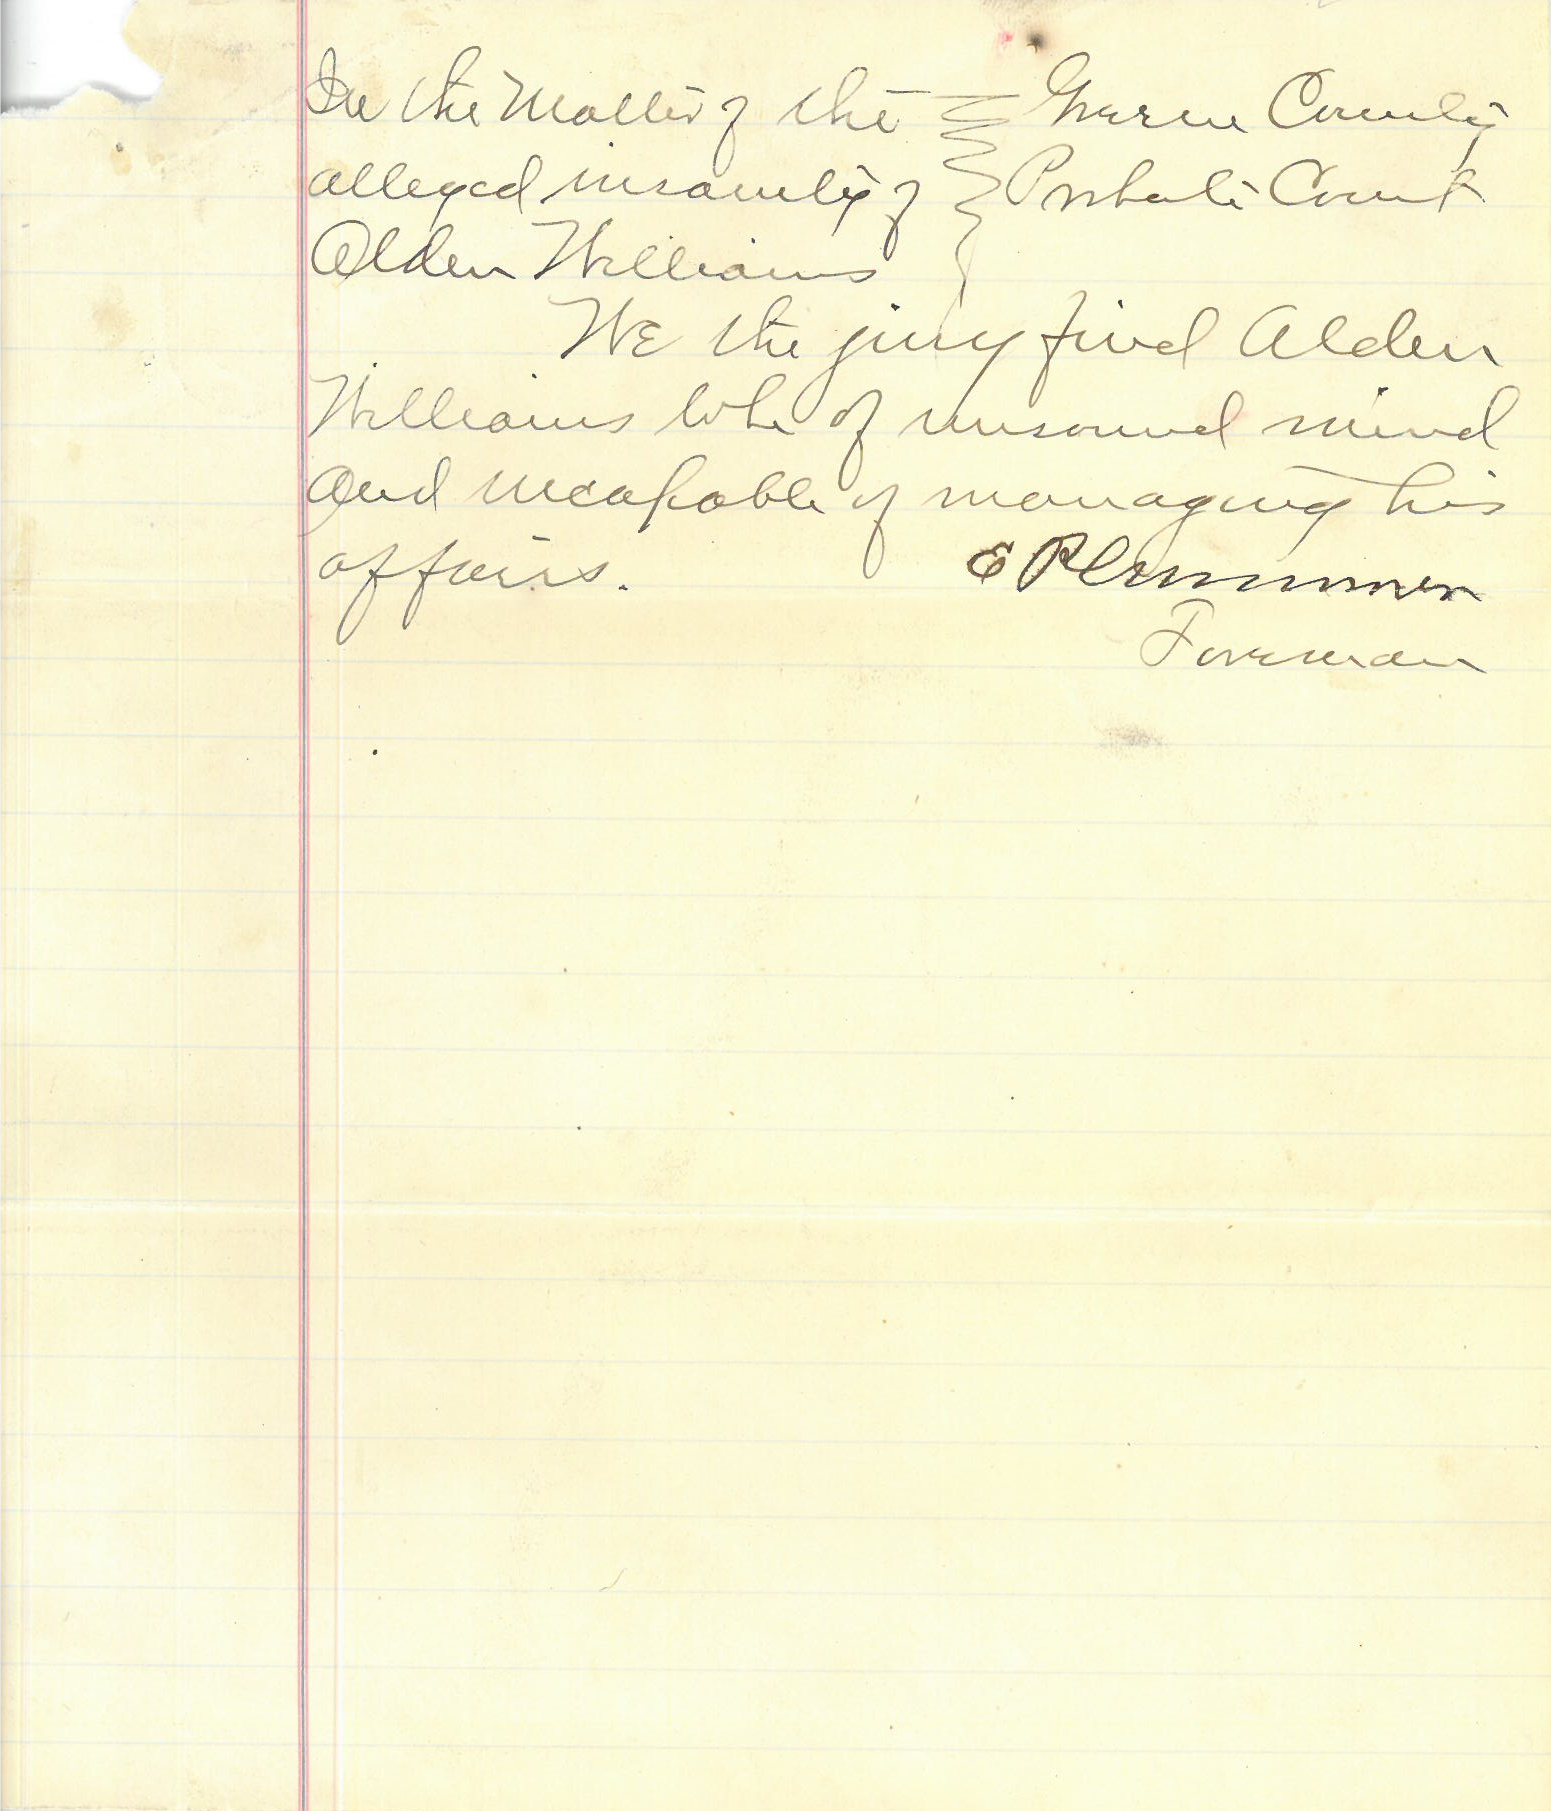 In the Matter of the } Greene County
alleged insanity of } Probate Court
Alden Williams }
We the jury find Alden
Williams to be of unsound mind
and incapable of managing his
affairs. E Plummer
Foreman